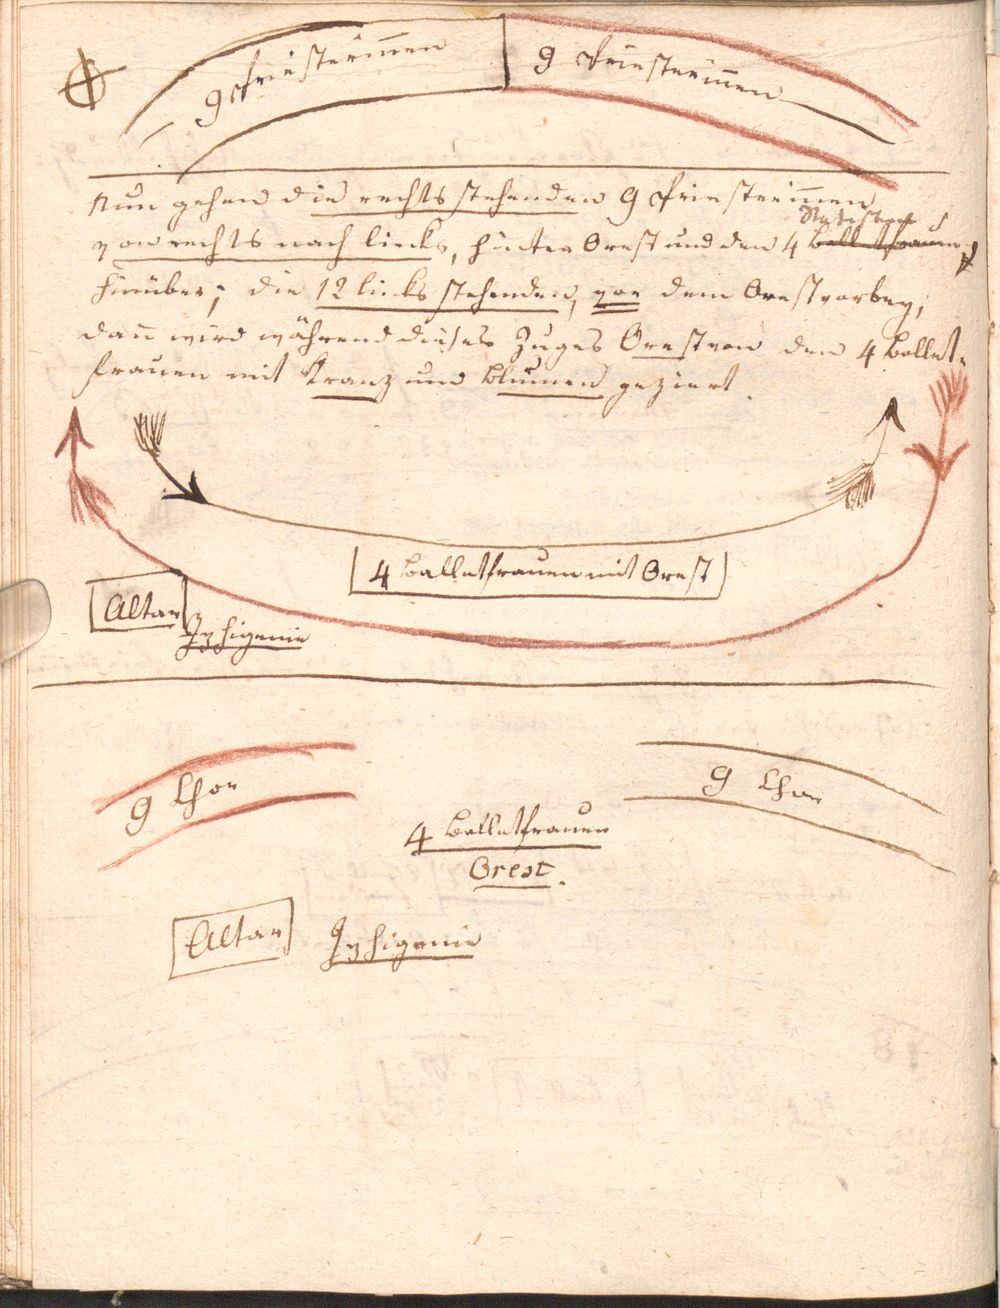 9 Priesterinnen
9 Priesterinnen
Nun gehen die rechts stehenden 9 Priesterinnen
von rechts nach links, hinter Orest und den 4 Balletfrauen
hinüber; die 12 links stehenden, vor dem Orest vorbey,
dann wird während dieses Zuges Orest von den 4 Ballet-
frauen mit Kranz und Blumen geziert.
4 Balletfrauen mit Orest
Altar
Iphigenie
9 Chor
9 Chor
4 Balletfrauen
Orest.
Altar
Iphigenie